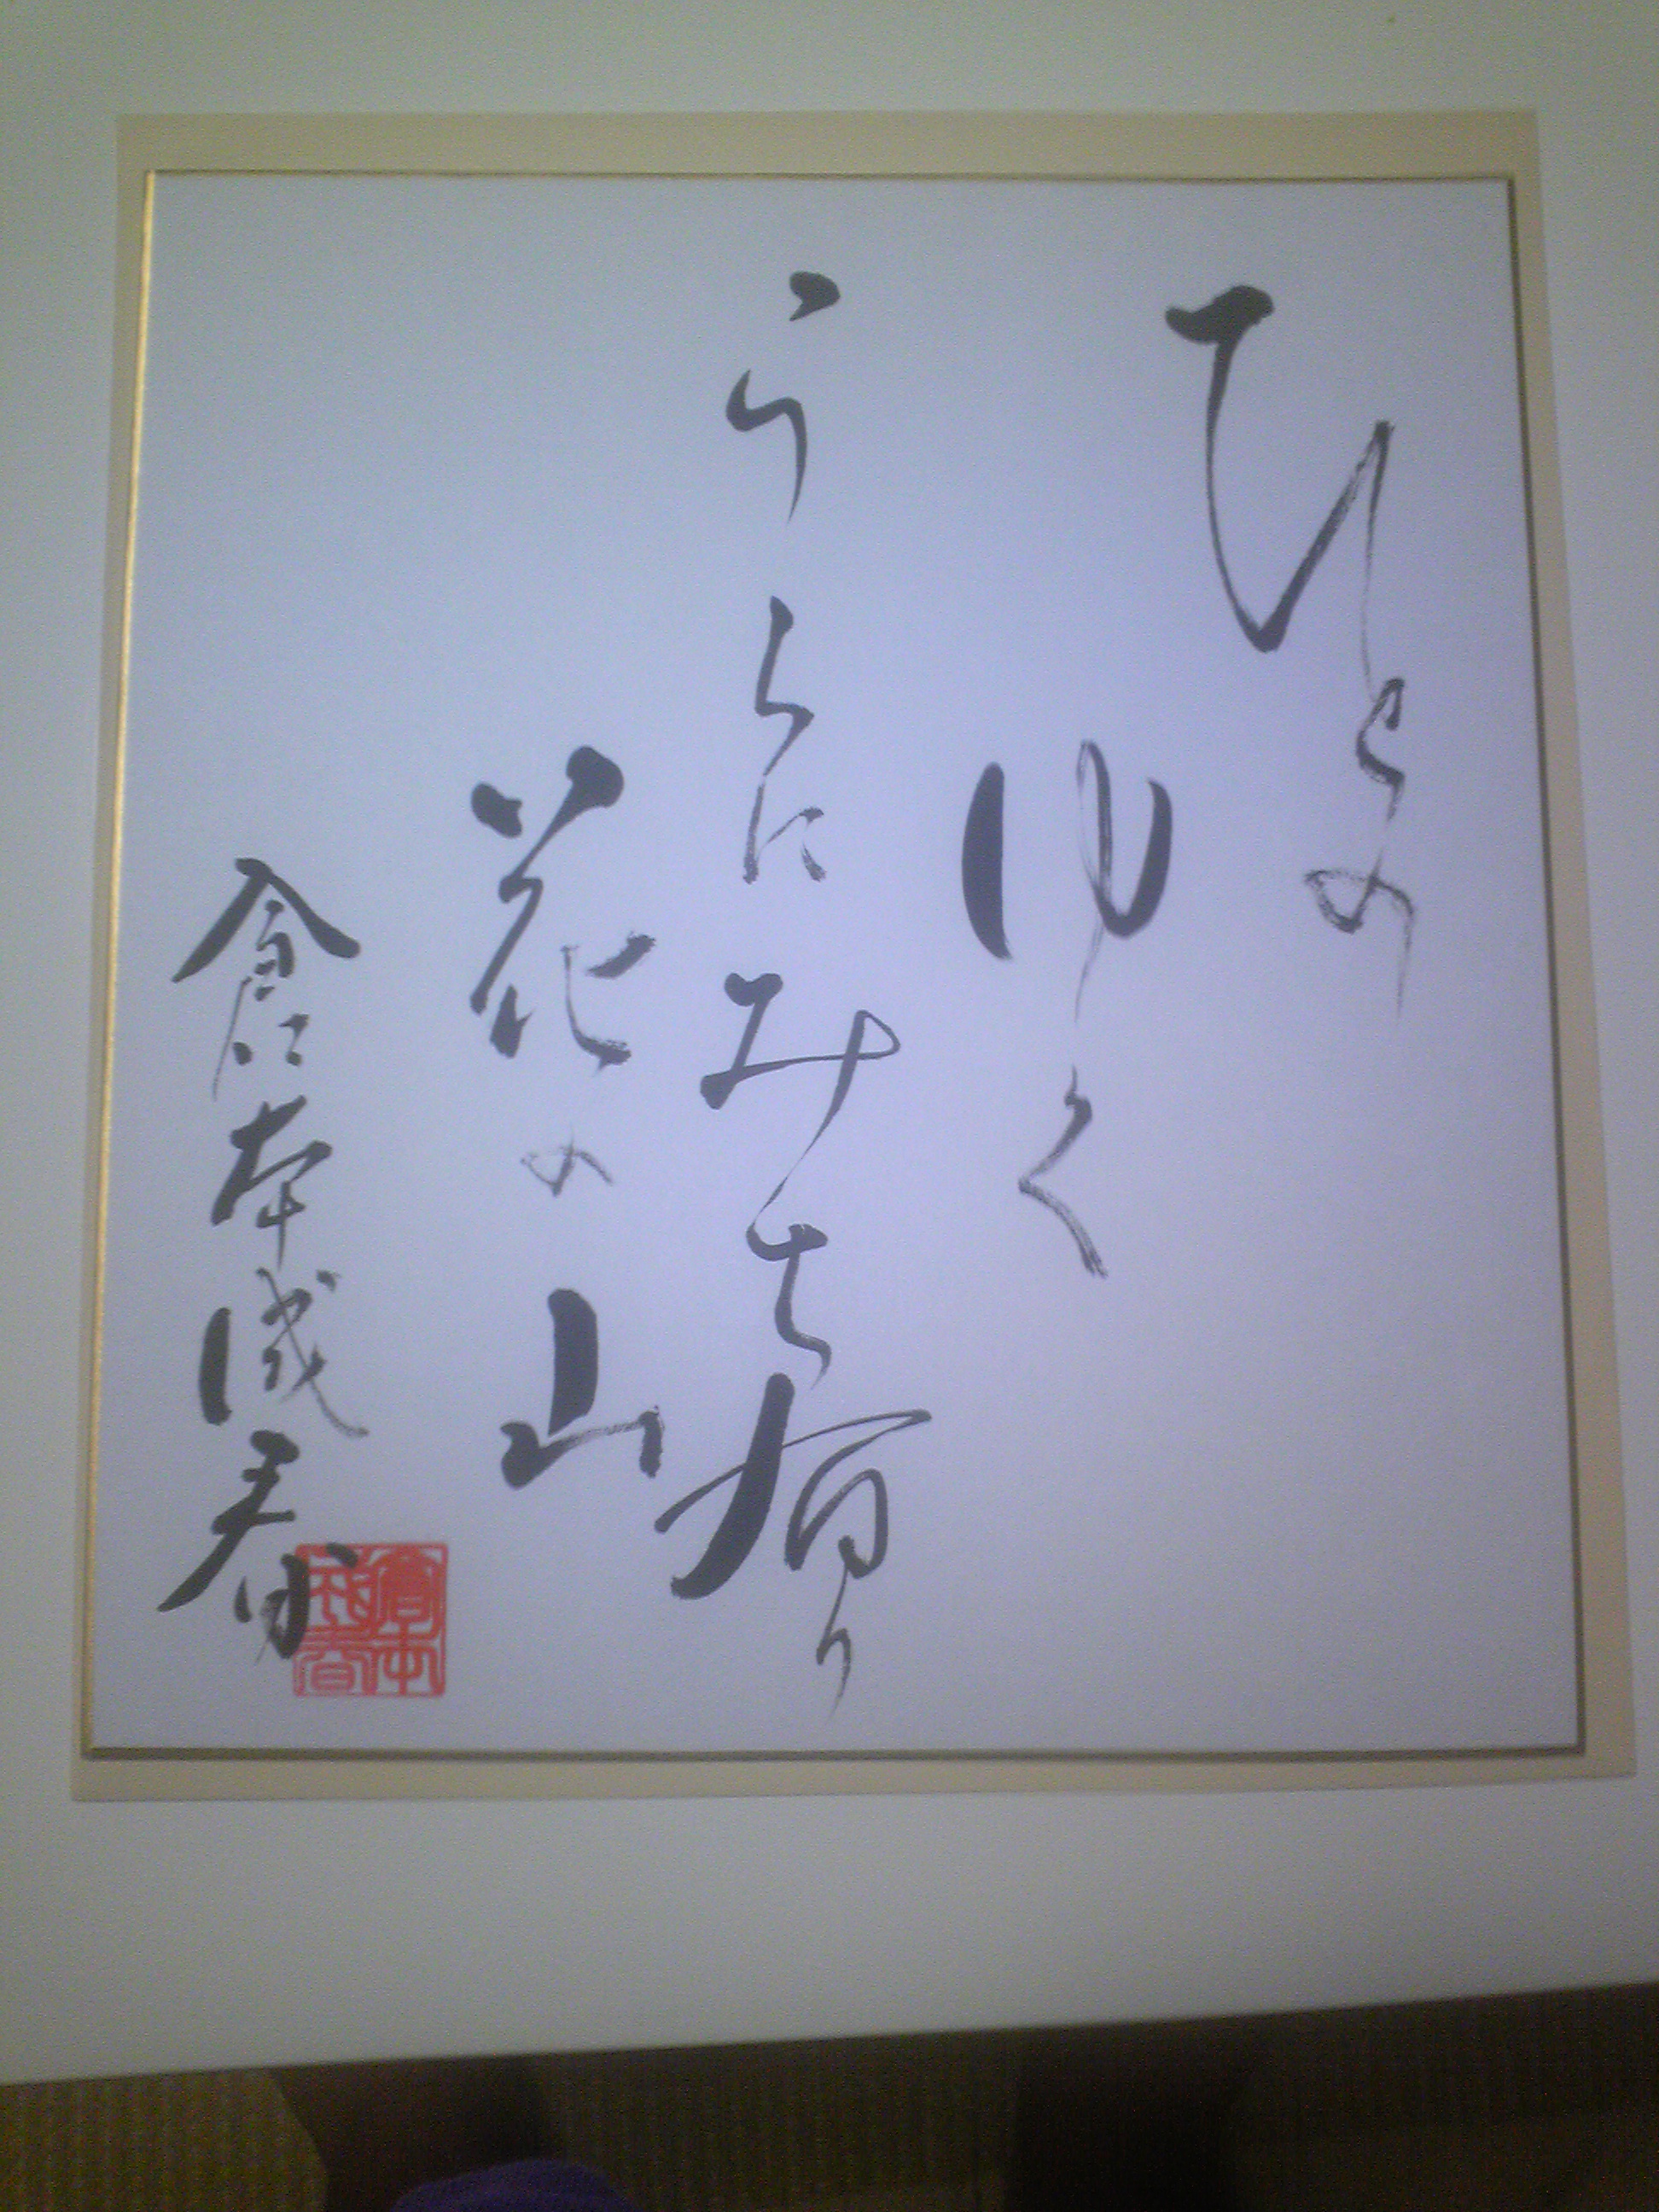 ひとの
ゆく
うらにみち有り
花の山
倉本誠春